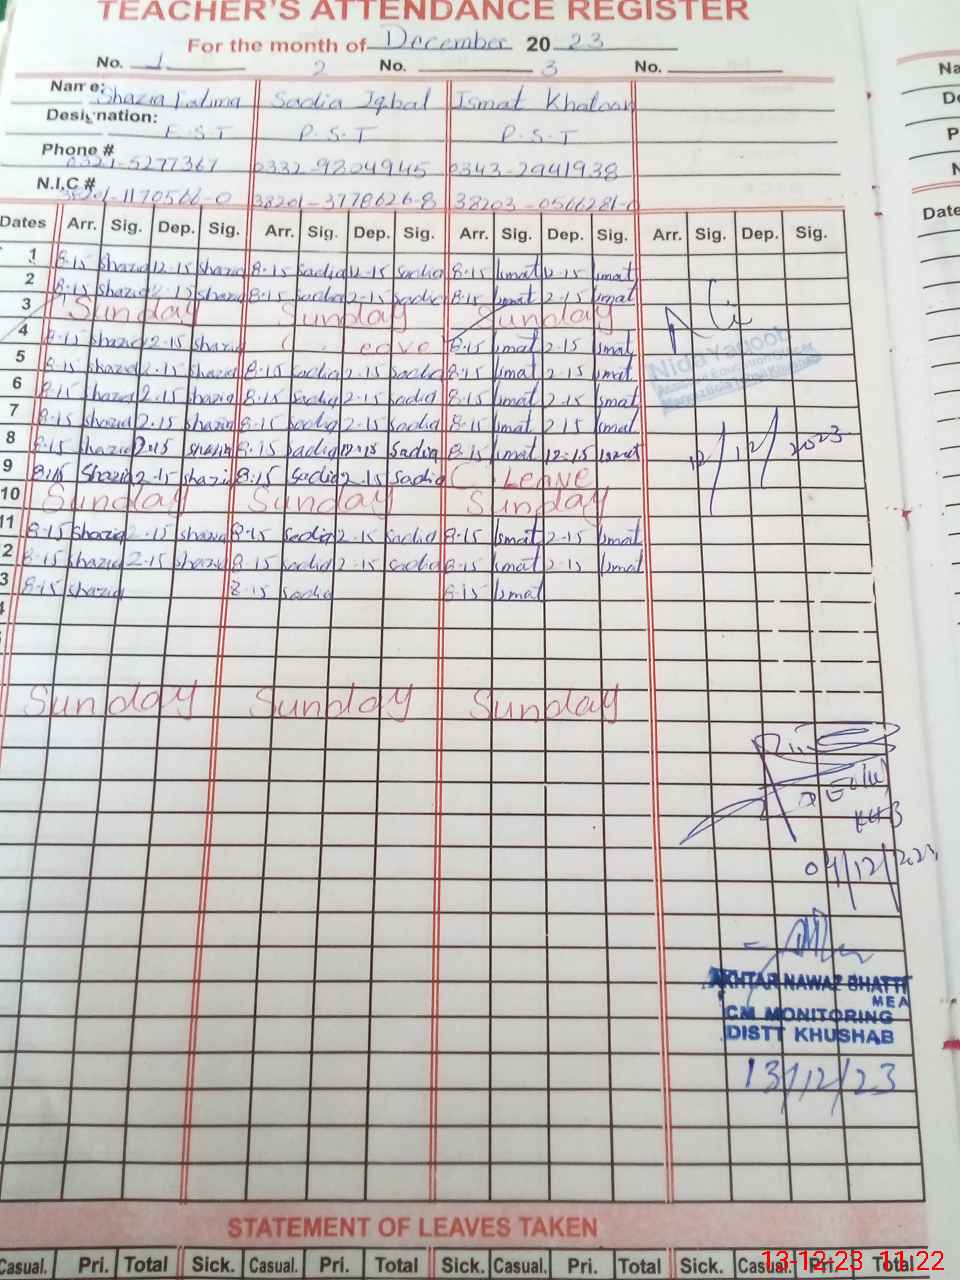 TEACHER'S ATTENDANCE REGISTER
For the month of December 20 23
No. 1 2 No. 3 No.
Name: Shazia Fatima Sadia Iqbal Ismat Khatoon
Designation: E.S.T P.S.T P.S.T
Phone # 0321-5277367 0332-9804945 0343-2941938
N.I.C # 38201-1170566-0 38201-3778626-8 38203-0566281-
Dates Arr. Sig. Dep. Sig. Arr. Sig. Dep. Sig. Arr. Sig. Dep. Sig. Arr. Sig. Dep. Sig.
1 8-15 Shazia 12-15 Shazia 8-15 Sadia 12-15 Sadia 8-15 Ismat 12-15 Ismat
2 8-15 Shazia 2-15 Shazia 8-15 Sadia 2-15 Sadia 8-15 Ismat 2-15 Ismat
3 Sunday Sunday Sunday
4 8-15 Shazia 2-15 Shazia C. Leave 8-15 Ismat 2-15 Ismat
5 8-15 Shazia 2-15 Shazia 8-15 Sadia 2-15 Sadia 8-15 Ismat 2-15 Ismat
6 8-15 Shazia 2-15 Shazia 8-15 Sadia 2-15 Sadia 8-15 Ismat 2-15 Ismat
7 8-15 Shazia 2-15 Shazia 8-15 Sadia 2-15 Sadia 8-15 Ismat 2-15 Ismat
8 8-15 Shazia 2-15 Shazia 8-15 Sadia 12-15 Sadia 8-15 Ismat 12-15 Ismat
9 8-15 Shazia 2-15 Shazia 8-15 Sadia 2-15 Sadia C Leave
10 Sunday Sunday Sunday
11 8-15 Shazia 2-15 Shazia 8-15 Sadia 2-15 Sadia 8-15 Ismat 2-15 Ismat
2 8-15 Shazia 2-15 Shazia 8-15 Sadia 2-15 Sadia 8-15 Ismat 2-15 Ismat
3 8-15 Shazia 8-15 Sadia 8-15 Ismat
Nida Yaqoob
12/12/2023
Sunday Sunday Sunday
KHB
04/12/2023
AKHTAR NAWAZ BHATTI
MEA
CM MONITORING
DISTT KHUSHAB
13/12/23
STATEMENT OF LEAVES TAKEN
Casual. Pri. Total Sick. Casual. Pri. Total Sick. Casual. Pri. Total Sick. Casual. Pri. Total
13-12-23 11:22
Na
De
P
N
Date